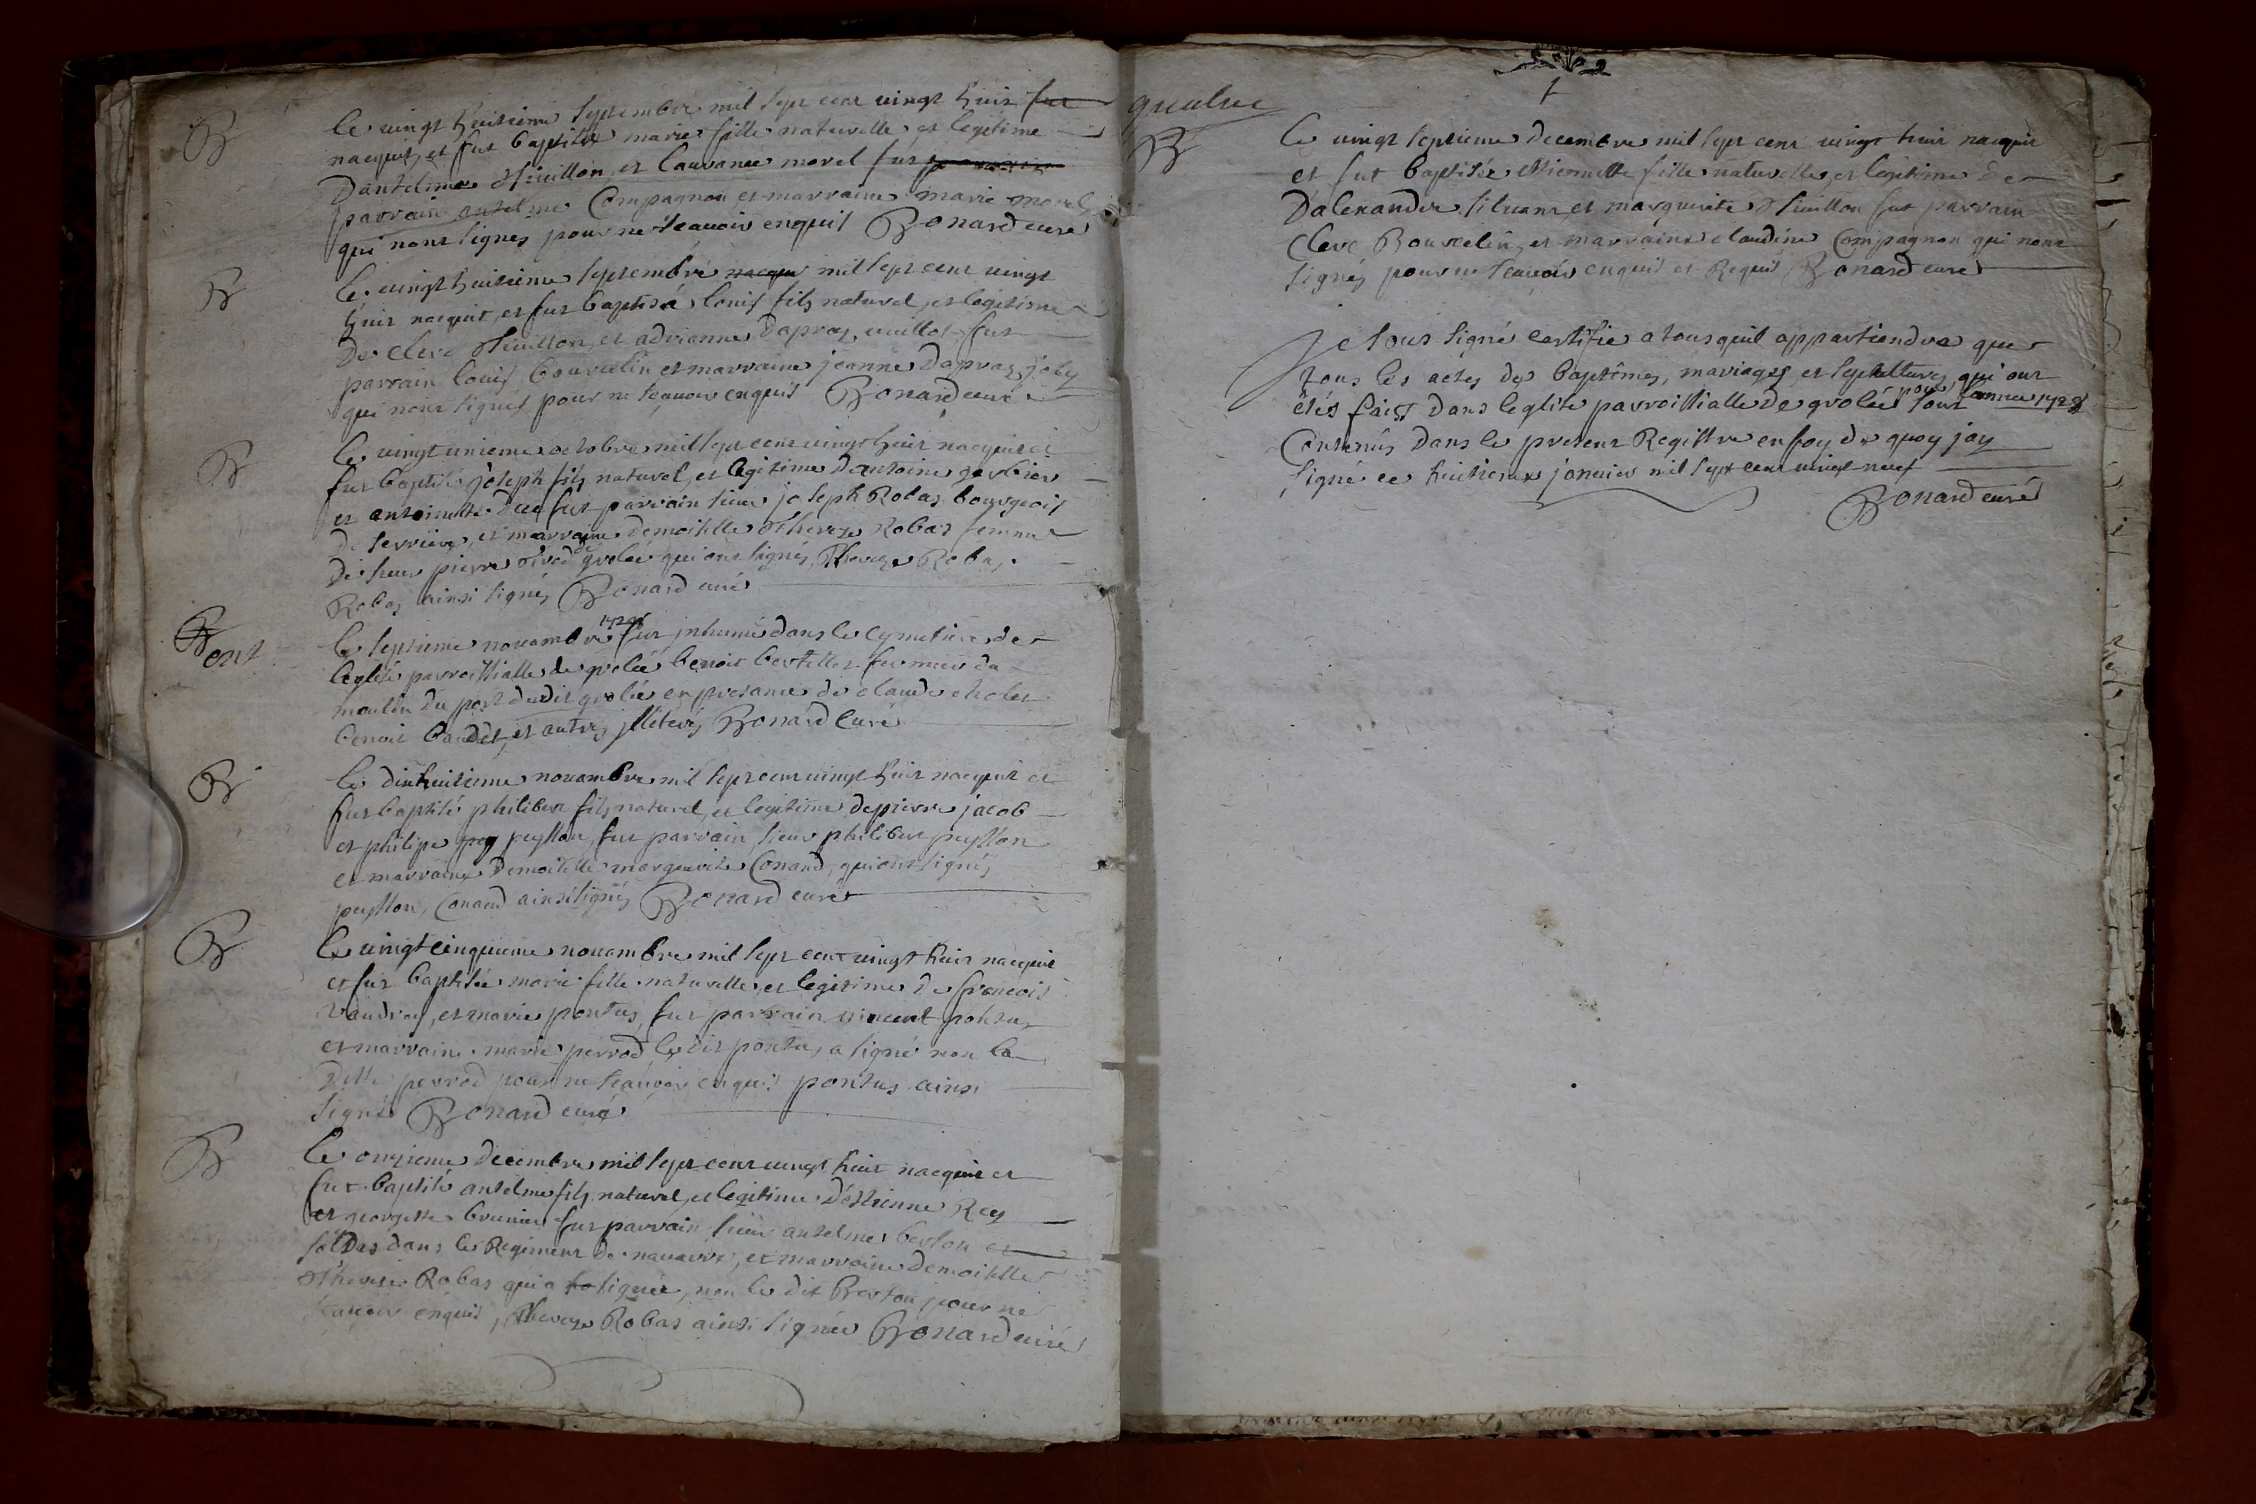 B
le vingt huitieme septembre mil sept cent vingt huit fut
nacquit, et fut baptisée marie fille naturelle et legitime
D'antelme thiuillon, et laurance morel fut
parrain antelme Compagnon et marraine marie morel
qui n'ont signés pour ne scauoir enquis Bonard curé
B
le vingt huitieme septembre nacquit mil sept cent vingt
huit nacquit, et fut baptisé louis fils naturel, et legitime
De clere thiuillon, et adrienne Dapraz fut
parrain louis bourcelin et marraine jeanne Dapraz
qui n'ont signés pour ne scauoir enquis Bonard curé
B
le vingt unieme octobre mil sept cent vingt huit nacquit et
fut baptisé joseph fils naturel, et legitime d'antoine
et antoinette fut parrain sieur joseph Robas bourgeois
De serrieres, et marraine demoiselle Therese Robas femme
De sieur pierre de grolée qui ont signés, Therese Robas,
Robas ainsi signés Bonard curé
B
ent
le septieme nouambre 1728 fut inhumé dans le cymetiere de
leglise parroissialle de grolée benoit fermier du
moulin du port dudit grolée en presance de claude
benoit baudet, et autres illiterés Bonard Curé
B
le dixhuitieme nouambre mil sept cent vingt huit nacquit et
fut baptisé philibert fils naturel, et legitime de pierre jacob
et philipe pey peysson, fut parrain sieur philibert peysson
et marraine Demoiselle marguerite Conand, qui ont signés
peysson, Conand ainsi signés Bonard curé
B
le vingt cinquieme nouambre mil sept cent vingt huit nacquit
et fut baptisée marie fille naturelle, et legitime de francois
vaudray, et marie pontus, fut parrain vincent pontus
et marraine marie perrod le dit pontus a signé non la
Ditte perrod pour ne scauoir enquis pontus ainsi
signé Bonard curé
B
le onzieme decembre mil sept cent vingt huit nacquit et
fut baptisé antelme fils naturel, et legitime D'estienne Rey
et georgette brunier fut parrain sieur antelme berton et
soldas dans le Regiment de nauarre, et marraine demoiselle
Therese Robas qui a signée, non le dit Berton pour ne
scauoir enquis, Therese Robas ainsi signée Bonard curé
quatre
B
le vingt septieme decembre mil sept cent vingt huit nacquit
et fut baptisée estiennette fille naturelle, et legitime de
D'alexandre siluant, et marguerite thiuillon fut parrain
Clere Bourcelin, et marraine claudine Compagnon qui n'ont
signés pour ne scauoir enquis et Requis Bonard curé
Je sous signé certifie a tous quil appartiendra que
tous les actes de baptêmes, mariages, et sepultures qui ont
étés faits dans leglise parroissialle de grolée pour lannee 1728 sont
Contenus dans le present Registre en foy de quoy jay
signé ce huitieme januier mil sept cent vingt neuf
Bonard curé